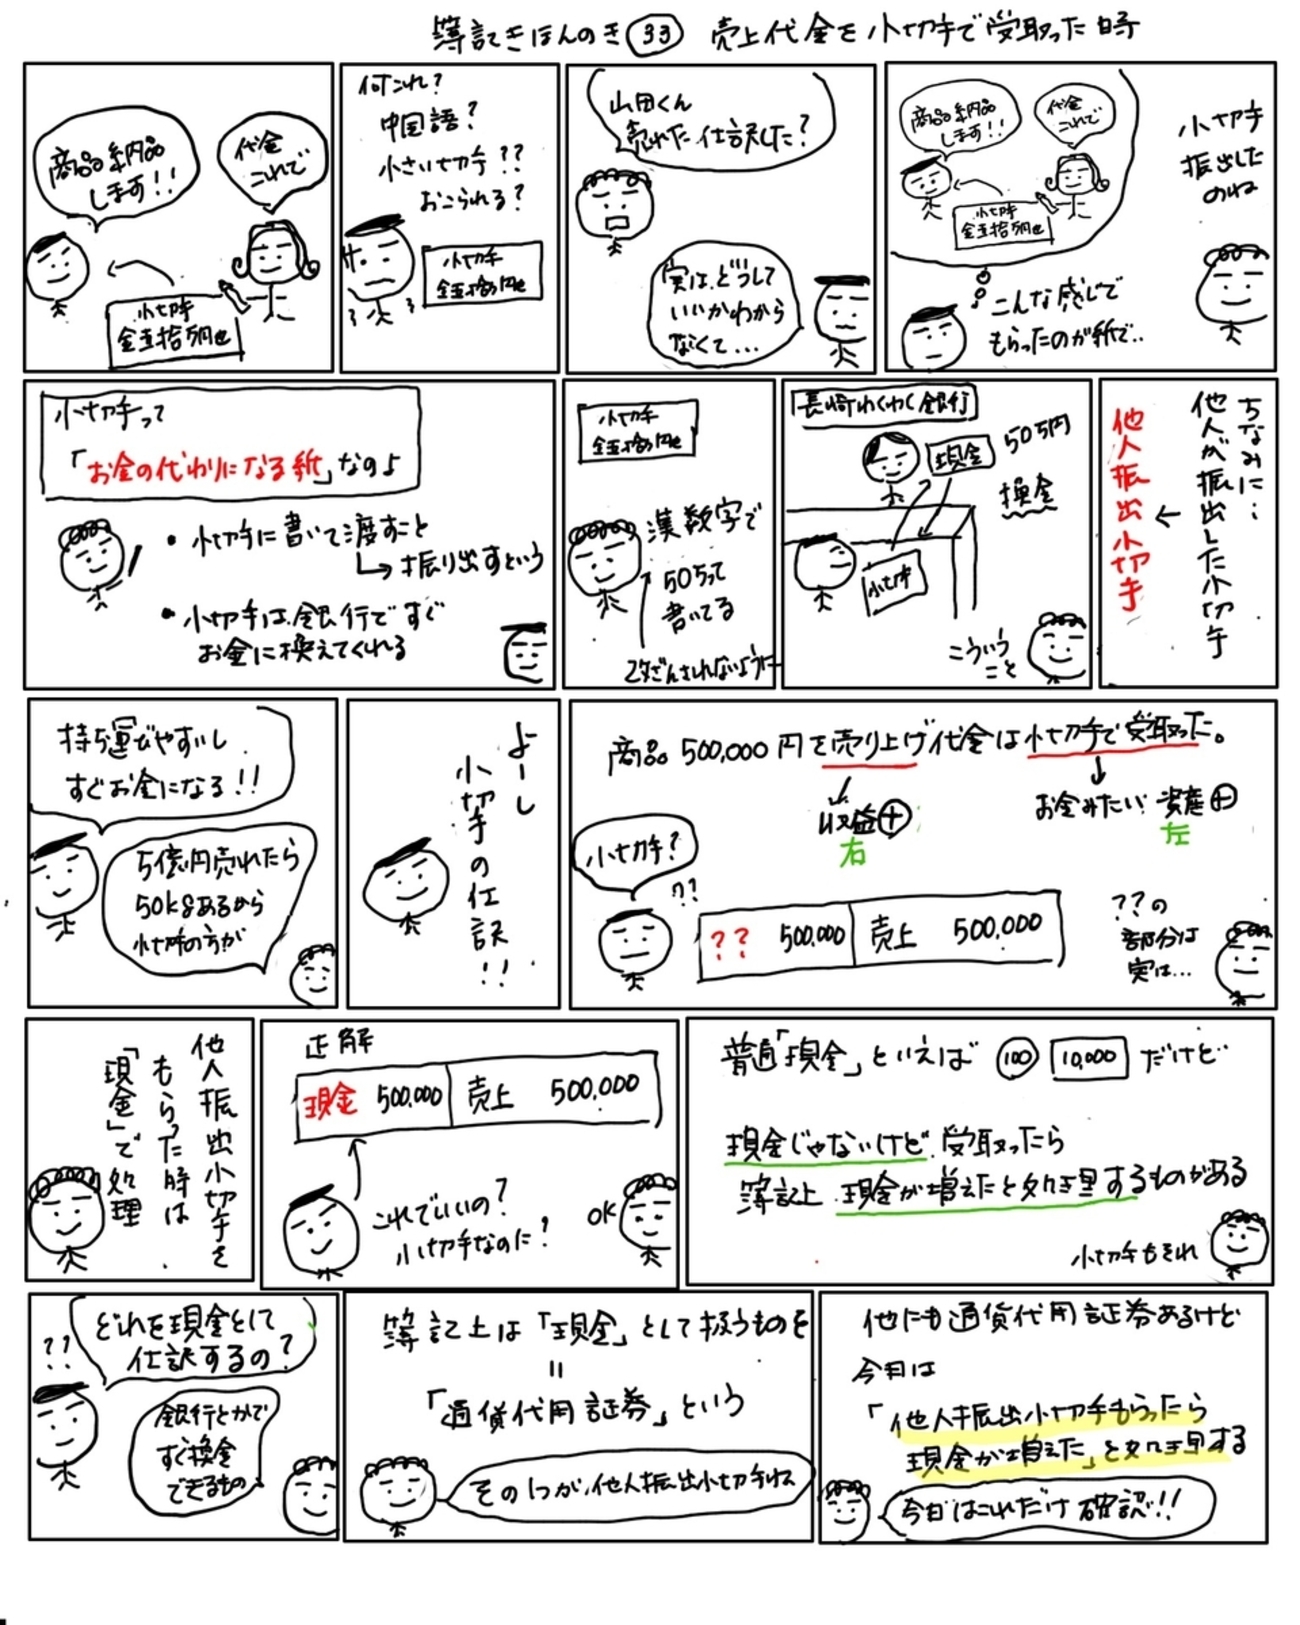 簿記きほんのき㉝ 売上代金を小切手で受取った時
商品納品
します!!
代金
これで
小切手
金五拾万円也
何これ?
中国語?
小さい切手??
おこられる?
小切手
金五拾万円也
山田くん
売れた仕訳した?
実は、どうして
いいかわから
なくて...
商品納品
します!!
代金
これで
小切手
金五拾万円也
小切手
振出した
のね
こんな感じで
もらったのが紙で..
小切手って
「お金の代わりになる紙」なのよ
・小切手に書いて渡すこと
→振り出すという
・小切手は、銀行ですぐ
お金に換えてくれる
小切手
金五拾万円也
漢数字で
50万って
書いてる
改ざんされないように
長崎わくわく銀行
現金
50万円
換金
小切手
こういう
こと
ちなみに...
他人が振出した小切手
↓
他人振出小切手
持ち運びやすいし
すぐお金になる!!
5億円売れたら
50kgあるから
小切手の方が
よーし
小切手の仕訳!!
商品500,000円を売り上げ代金は小切手で受取った。
収益⊕
右
お金みたい 資産⊕
左
小切手?
??
?? 500,000 売上 500,000
??の
部分は
実は...
他人振出小切手を
もらった時は
「現金」で処理
正解
現金 500,000 売上 500,000
これでいいの?
小切手なのに?
OK
普通「現金」といえば 100 10,000 だけど
現金じゃないけど 受取ったら
簿記上 現金が増えたと処理するものがある
小切手もそれ
??
どれを現金として
仕訳するの?
銀行とかで
すぐ換金
できるもの
簿記上は「現金」として扱うものを
=
「通貨代用証券」という
その1つが、他人振出小切手ね
他にも通貨代用証券あるけど
今日は
「他人振出小切手もらったら
現金が増えた」と処理する
今日はこれだけ確認!!